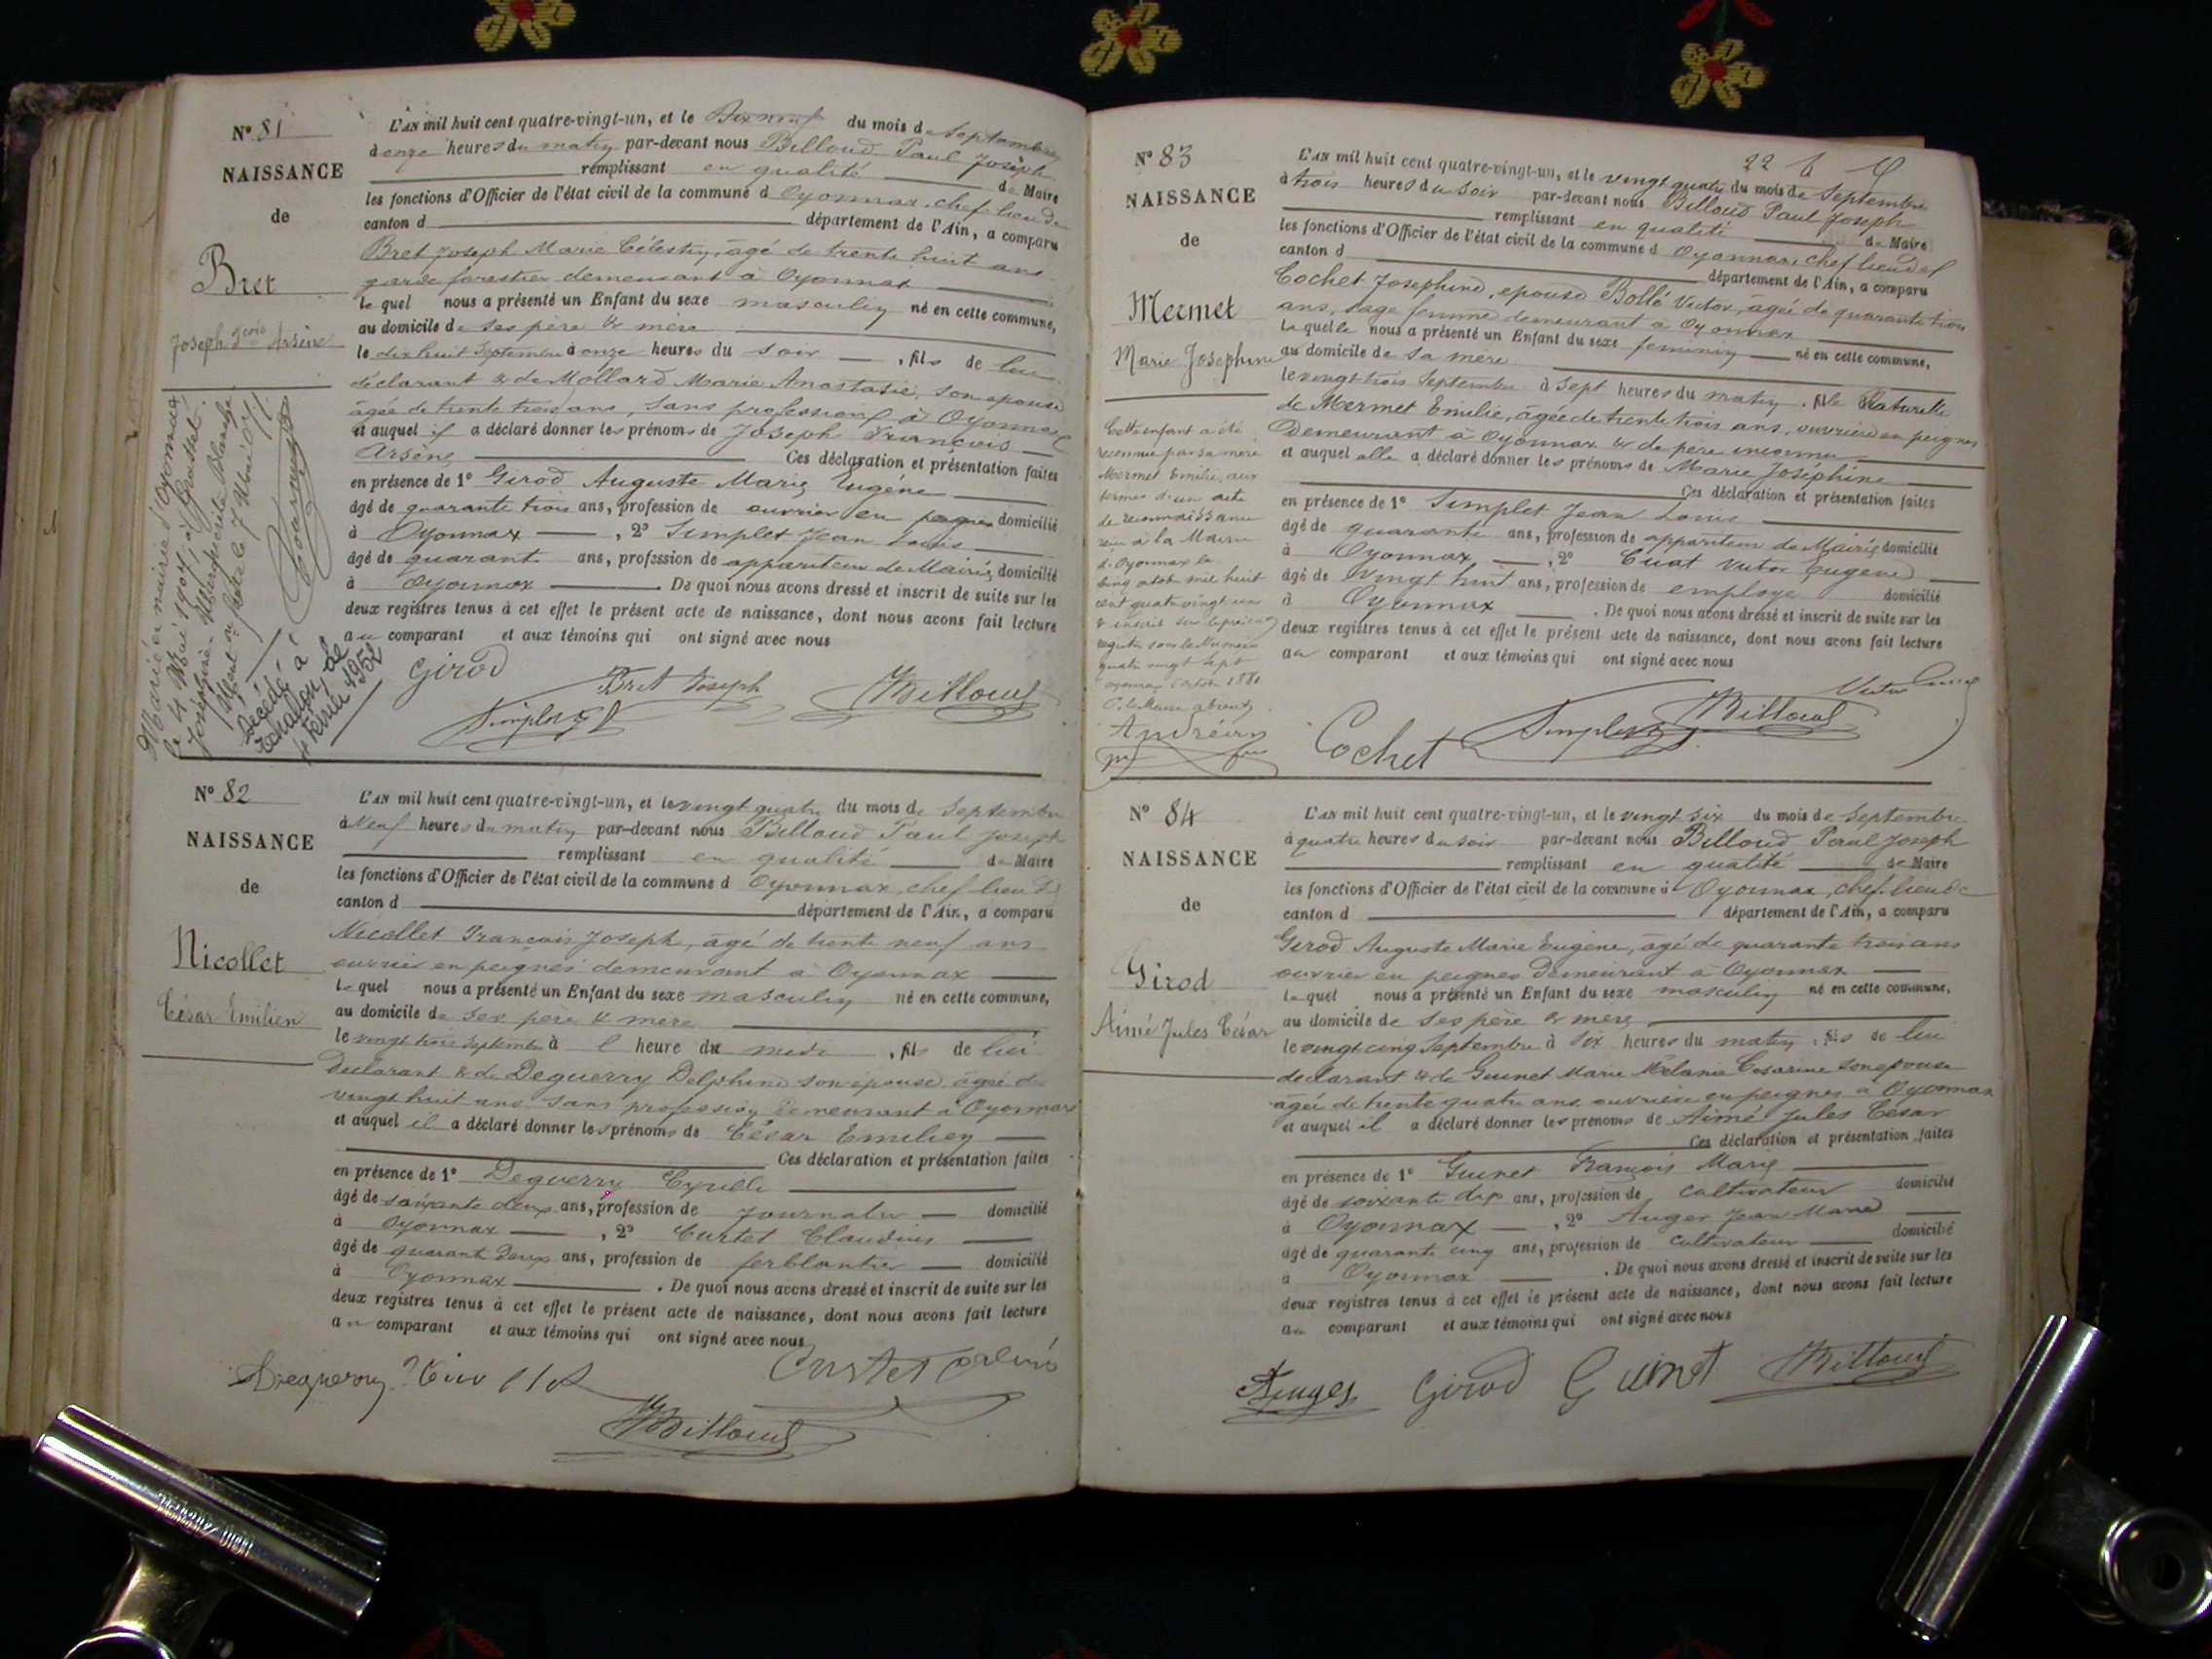 N° 81
NAISSANCE
de
Bret
Joseph Fcois Arsène
Marié en mairie d'Oyonnax
le 4 Mai 1907, à Grosset
Joséphine Marguerite Blanche
Décédé à
le
4 Février 1952
L'AN mil huit cent quatre-vingt-un, et le Dix neuf du mois de Septembre
à onze heures du matin par-devant nous Billoud Paul Joseph
remplissant en qualité de Maire
les fonctions d'Officier de l'état civil de la commune d Oyonnax, chef-lieu de
canton d département de l'Ain, a comparu
Bret Joseph Marie Célestin, âgé de trente huit ans
garde forestier demeurant à Oyonnax
lequel nous a présenté un Enfant du sexe masculin né en cette commune,
au domicile de ses père & mère
le dix huit Septembre à onze heures du soir , fils de lui
déclarant & de Mollard Marie Anastasie, son épouse
âgée de trente trois ans, sans profession à Oyonnax
et auquel il a déclaré donner les prénoms de Joseph François
Arsène Ces déclaration et présentation faites
en présence de 1° Girod Auguste Marie Eugène
âgé de quarante trois ans, profession de ouvrier en peignes domicilié
à Oyonnax , 2° Simplet Jean Louis
âgé de quarante ans, profession de appariteur de Mairie domicilié
à Oyonnax De quoi nous avons dressé et inscrit de suite sur les
deux registres tenus à cet effet le présent acte de naissance, dont nous avons fait lecture
au comparant et aux témoins qui ont signé avec nous
Girod Bret Joseph
Simplet Billoud
N° 82
NAISSANCE
de
Nicollet
César Emilien
L'AN mil huit cent quatre-vingt-un, et le vingt quatre du mois de Septembre
à Neuf heures du matin par-devant nous Billoud Paul Joseph
remplissant en qualité de Maire
les fonctions d'Officier de l'état civil de la commune d Oyonnax, chef lieu de
canton d département de l'Ain, a comparu
Nicollet François Joseph, âgé de trente neuf ans
ouvrier en peignes demeurant à Oyonnax
lequel nous a présenté un Enfant du sexe masculin né en cette commune,
au domicile de ses père & mère
le vingt trois Septembre à heure du midi , fils de lui
Déclarant & de Deguerry Delphine son épouse, âgée de
vingt huit ans sans profession demeurant à Oyonnax
et auquel il a déclaré donner les prénoms de César Emilien
Ces déclaration et présentation faites
en présence de 1° Deguerry Cyrille
âgé de soixante deux ans, profession de journalier domicilié
à Oyonnax , 2° Curtet Claudius
âgé de quarante deux ans, profession de ferblantier domicilié
à Oyonnax . De quoi nous avons dressé et inscrit de suite sur les
deux registres tenus à cet effet le présent acte de naissance, dont nous avons fait lecture
au comparant et aux témoins qui ont signé avec nous
Deguerry Curtet
Billoud
N° 83
NAISSANCE
de
Mermet
Marie Josephine
Cette enfant a été
reconnue par sa mère
Mermet Emilie, aux
termes d'un acte
de reconnaissance
reçu à la Mairie
d'Oyonnax le
cinq octobre mil huit
cent quatre vingt un
& inscrit sur le présent
registre sous le Numéro
quatre vingt sept
L'AN mil huit cent quatre-vingt-un, et le vingt quatre du mois de Septembre
à trois heures du soir par-devant nous Billoud Paul Joseph
remplissant en qualité de Maire
les fonctions d'Officier de l'état civil de la commune d Oyonnax, chef lieu de
canton d département de l'Ain, a comparu
Cochet Josephine, épouse Bollé Victor, âgée de quarante trois
ans, sage femme demeurant à Oyonnax
laquelle nous a présenté un Enfant du sexe feminin né en cette commune,
au domicile de sa mère
le vingt trois Septembre à Sept heures du matin, fille Naturelle
de Mermet Emilie, âgée de trente trois ans, ouvrière en peignes
Demeurant à Oyonnax & de père inconnu
et auquel elle a déclaré donner les prénoms de Marie Joséphine
Ces déclaration et présentation faites
en présence de 1° Simplet Jean Louis
âgé de quarante ans, profession de appariteur de Mairie domicilié
à Oyonnax , 2° Cuat Victor Eugène
âgé de vingt huit ans, profession de employé domicilié
à Oyonnax . De quoi nous avons dressé et inscrit de suite sur les
deux registres tenus à cet effet le présent acte de naissance, dont nous avons fait lecture
au comparant et aux témoins qui ont signé avec nous
Cochet Simplet Billoud Victor
N° 84
NAISSANCE
de
Girod
Aimé Jules César
L'AN mil huit cent quatre-vingt-un, et le vingt six du mois de Septembre
à quatre heures du soir par-devant nous Billoud Paul Joseph
remplissant en qualité de Maire
les fonctions d'Officier de l'état civil de la commune d Oyonnax, chef-lieu de
canton d département de l'Ain, a comparu
Girod Auguste Marie Eugène, âgé de quarante trois ans
ouvrier en peignes Demeurant à Oyonnax
lequel nous a présenté un Enfant du sexe masculin né en cette commune,
au domicile de ses père & mère
le vingt cinq Septembre à six heures du matin, fils de lui
déclarant & de Guinet Marie Mélanie Césarine son épouse
âgée de trente quatre ans ouvrière en peignes à Oyonnax
et auquel il a déclaré donner les prénoms de Aimé Jules César
Ces déclaration et présentation faites
en présence de 1° Guinet François Marie
âgé de soixante dix ans, profession de cultivateur domicilié
à Oyonnax , 2° Auger Jean Marie
âgé de quarante cinq ans, profession de cultivateur domicilié
à Oyonnax . De quoi nous avons dressé et inscrit de suite sur les
deux registres tenus à cet effet le présent acte de naissance, dont nous avons fait lecture
au comparant et aux témoins qui ont signé avec nous
Girod Guinet Billoud